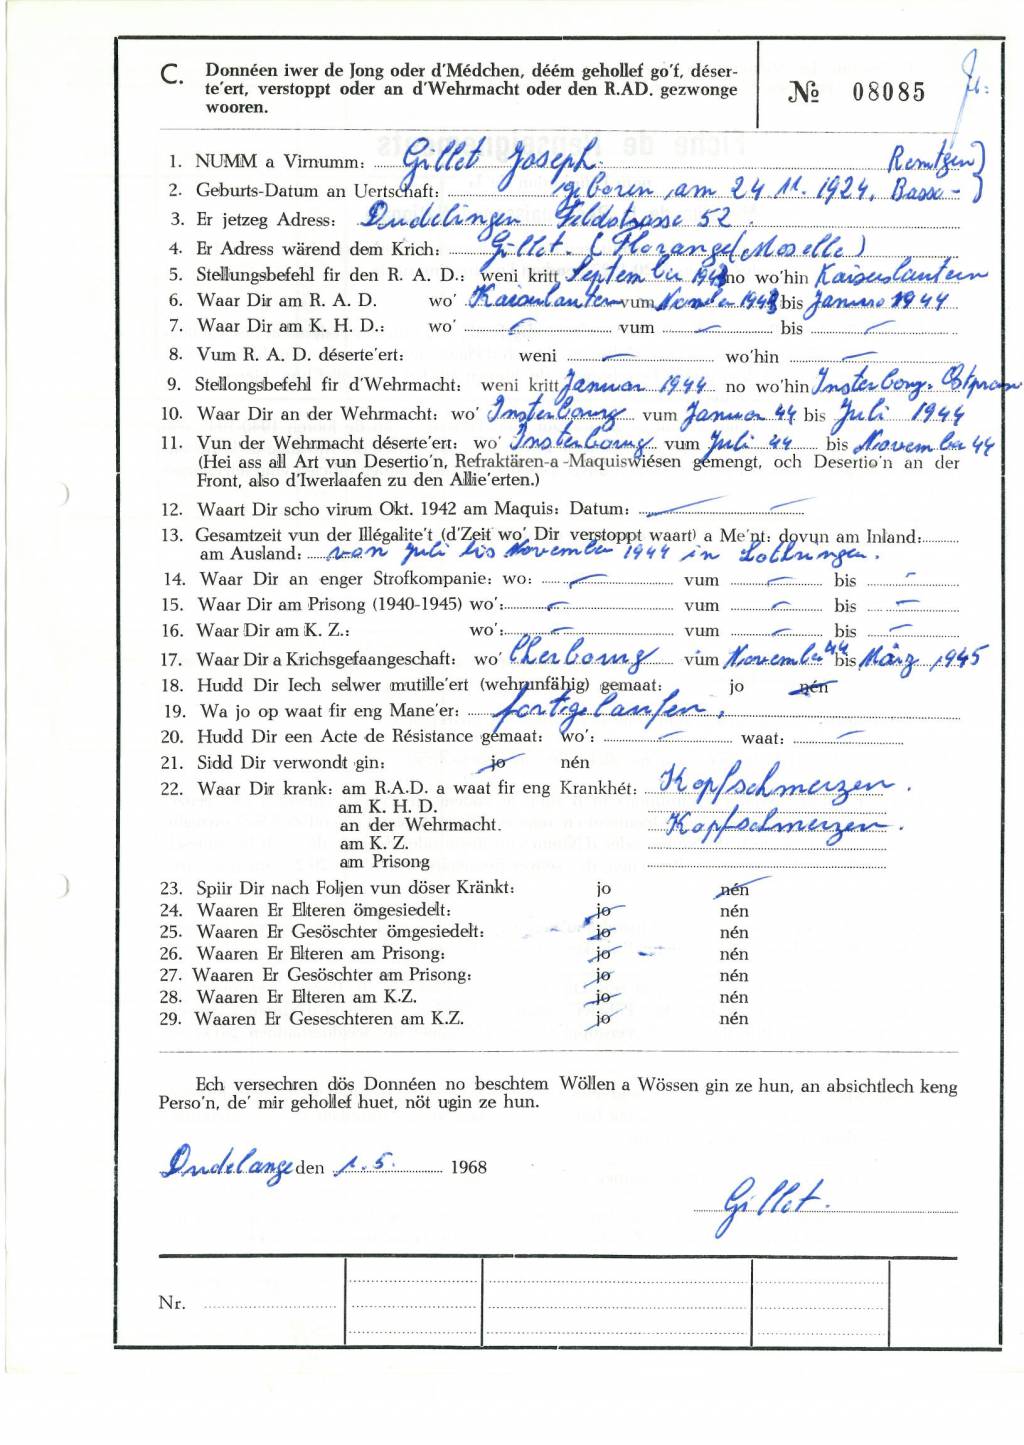 C. Donnéen iwer de Jong oder d'Médchen, déém gehollef go'f, déser-
te'ert, verstoppt oder an d'Wehrmacht oder den R.AD. gezwonge
wooren.
№ 08085
1. NUMM a Virnumm: Gillet Joseph. Remtgen)
2. Geburts-Datum an Uertschaft: geboren am 24 11. 1924, Basse-)
3. Er jetzeg Adress: Dudelingen Feldstrasse 52.
4. Er Adress wärend dem Krich: Gillet. (Florange (Moselle)
5. Stellungsbefehl fir den R. A. D.: weni kritt September 1943 no wo'hin Kaiserlautern
6. Waar Dir am R. A. D. wo' Kaiserlautern vum November 1943 bis Januar 1944
7. Waar Dir am K. H. D.: wo' — vum — bis —
8. Vum R. A. D. déserte'ert: weni — wo'hin —
9. Stellongsbefehl fir d'Wehrmacht: weni kritt Januar 1944 no wo'hin Insterbourg. Ostpreusen
10. Waar Dir an der Wehrmacht: wo' Insterbourg vum Januar 44 bis Juli 1944
11. Vun der Wehrmacht déserte'ert: wo' Insterbourg vum Juli 44 bis November 44
(Hei ass all Art vun Desertio'n, Refraktären-a-Maquiswiésen gemengt, och Desertio'n an der
Front, also d'Iwerlaafen zu den Allie'erten.)
12. Waart Dir scho virum Okt. 1942 am Maquis: Datum: — —
13. Gesamtzeit vun der Illégalite't (d'Zeit wo' Dir verstoppt waart) a Me'nt: dovun am Inland:
am Ausland: von Juli bis November 1944 in Lothringen.
14. Waar Dir an enger Strofkompanie: wo: — vum — bis —
15. Waar Dir am Prisong (1940-1945) wo': — vum — bis —
16. Waar Dir am K. Z.: wo': — vum — bis —
17. Waar Dir a Krichsgefaangeschaft: wo' Cherbourg vum November 44 bis März 1945
18. Hudd Dir Iech selwer mutille'ert (wehrunfähig) gemaat: jo nén
19. Wa jo op waat fir eng Mane'er: fortgelaufen.
20. Hudd Dir een Acte de Résistance gemaat: wo': — waat: —
21. Sidd Dir verwondt gin: jo nén
22. Waar Dir krank: am R.A.D. a waat fir eng Krankhét: Kopfschmerzen.
am K. H. D.
an der Wehrmacht. Kopfschmerzen.
am K. Z.
am Prisong
23. Spiir Dir nach Foljen vun döser Kränkt: jo nén
24. Waaren Er Elteren ömgesiedelt: jo nén
25. Waaren Er Gesöschter ömgesiedelt: jo nén
26. Waaren Er Elteren am Prisong: jo nén
27. Waaren Er Gesöschter am Prisong: jo nén
28. Waaren Er Elteren am K.Z. jo nén
29. Waaren Er Geseschteren am K.Z. jo nén
Ech versechren dös Donnéen no beschtem Wöllen a Wössen gin ze hun, an absichtlech keng
Perso'n, de' mir gehollef huet, nöt ugin ze hun.
Dudelange den 1. 5. 1968
Gillet.
Nr.